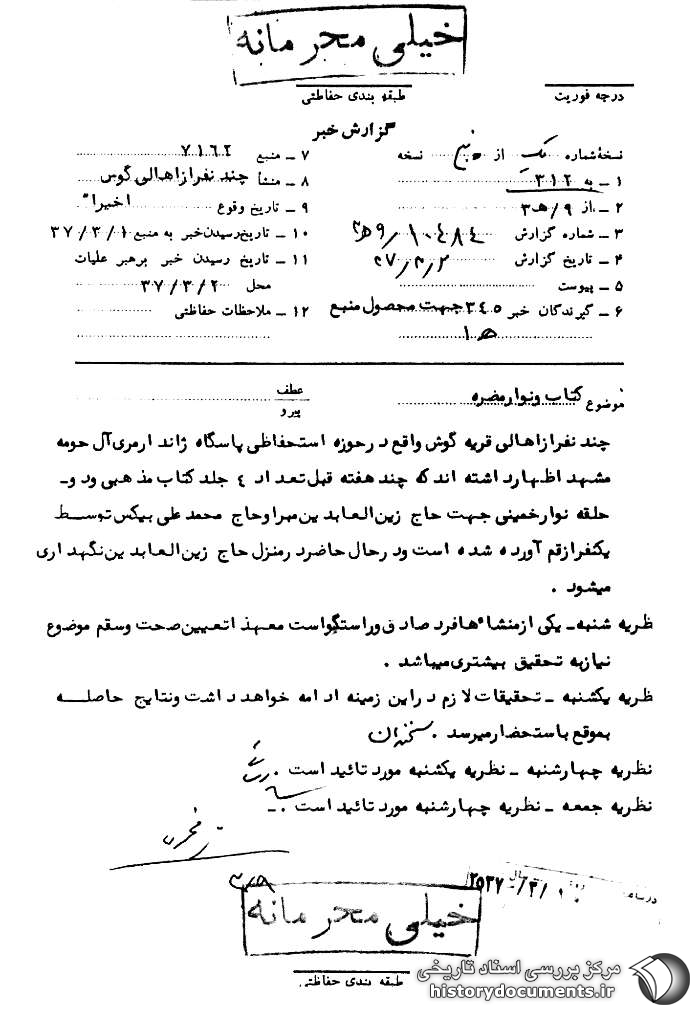 خیلی محرمانه
طبقه بندی حفاظتی
درجه فوریت
گزارش خبر
نسخهٔ شماره یک از پنج نسخه
۱ ـ به ۳۱۲
۲ ـ از ۹/ه۳
۳ ـ شماره گزارش ۱۰۴۸۴/۹ه۳
۴ ـ تاریخ گزارش ۳۷/۳/۲
۵ ـ پیوست
۶ ـ گیرندگان خبر ۳۴۵ جهت محصول منبع
۱ه
۷ ـ منبع ۷۱۶۲
۸ ـ منشأ چند نفر از اهالی گوش
۹ ـ تاریخ وقوع اخیراً
۱۰ ـ تاریخ رسیدن خبر به منبع ۳۷/۳/۱
۱۱ ـ تاریخ رسیدن خبر برهبر عملیات
محل ۳۷/۳/۲
۱۲ ـ ملاحظات حفاظتی
موضوع کتاب و نوار مضره
عطف
پیرو
چند نفر از اهالی قریه گوش واقع در حوزه استحفاظی پاسگاه ژاندارمری آل حومه
مشهد اظهار داشته اند که چند هفته قبل تعداد ۴ جلد کتاب مذهبی و دو ـ
حلقه نوار خمینی جهت حاج زین العابدین مهرا و حاج محمد علی بیکس توسط
یکنفر از قم آورده شده است و در حال حاضر در منزل حاج زین العابدین نگهداری
میشود .
نظریه شنبه ـ یکی از منشاء ها فرد صادق و راستگو است معهذا تعیین صحت و سقم موضوع
نیاز به تحقیق بیشتری میباشد .
نظریه یکشنبه ـ تحقیقات لازم در این زمینه ادامه خواهد داشت و نتایج حاصلــه
بموقع باستحضار میرسد . سخندان
نظریه چهارشنبه ـ نظریه یکشنبه مورد تائید است .
نظریه جمعه ـ نظریه چهارشنبه مورد تائید است . ـ
۲۵۳۷
خیلی محرمانه
طبقه بندی حفاظتی
مرکز بررسی اسناد تاریخی
historydocuments.ir